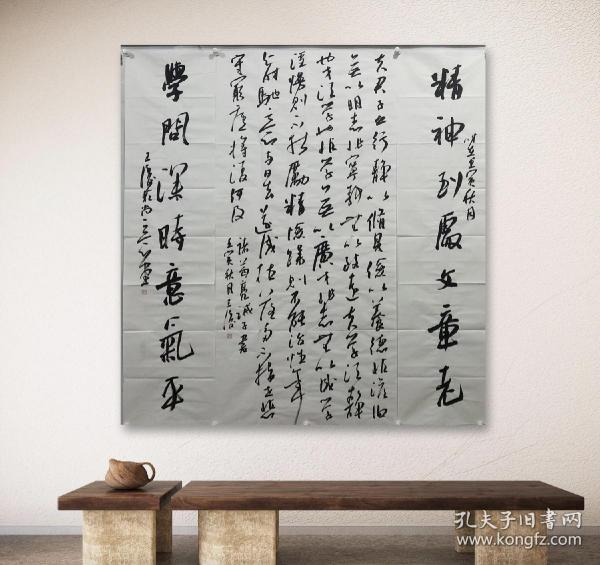 精神到處文章老
歲在壬寅秋月
夫君子之行靜以脩身儉以養德非澹泊
無以明志非寧靜無以致遠夫學須靜
也才須學也非學無以廣才非志無以成學
淫慢則不能勵精險躁則不能治性年
與時馳意與日去遂成枯落多不接世悲
守窮廬將復何及
諸葛亮誡子書
壬寅秋月王
學問深時意氣平
孔夫子旧书网
www.kongfz.com